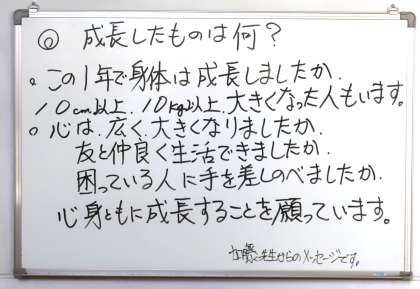 ◎ 成長したものは何？
。この1年で身体は成長しましたか.
10cm以上. 10kg以上. 大きくなった人もいます。
○心は、広く、大きくなりましたか.
友と仲良く生活できましたか.
困っている人に手を差しのべましたか.
心身ともに成長することを願っています。
加藤先生からのメッセージです。